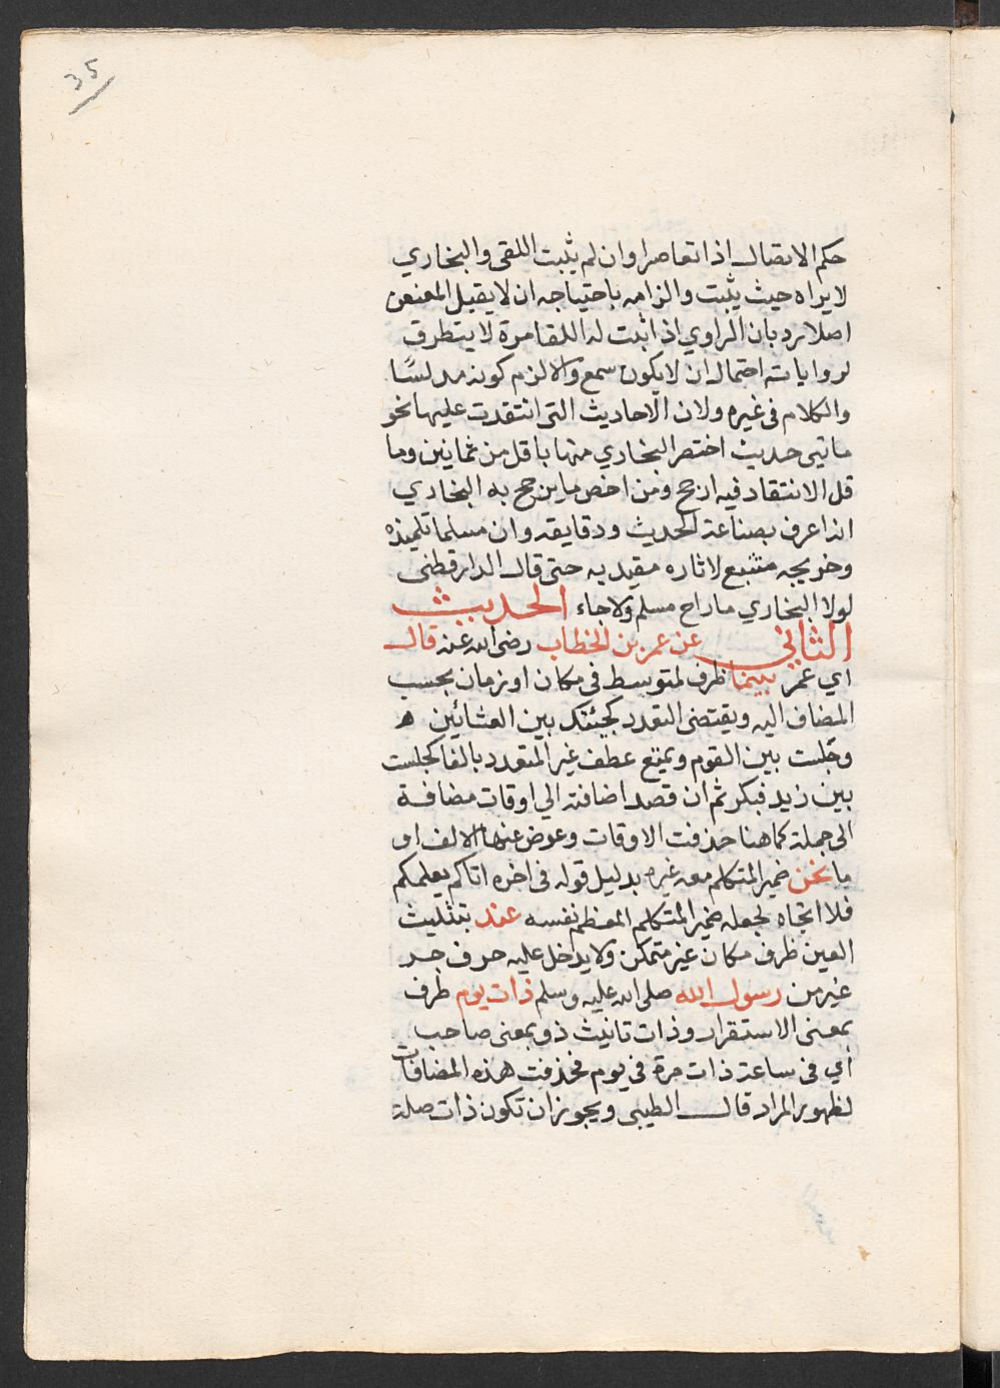 35
حكم الاتصال اذا تعاصرا وان لم يثبت اللقى والبخاري
لا يراه حيث يثبت والزامه باحتياجه ان لا يقبل المعنعن
اصلا رد بان الراوي اذا ثبت له اللقا مرة لا يتطرق
لرواياته احتمال ان لا يكون سمع والا لزم كونه مدلسًا
والكلام فى غيره ولان الاحاديث التى انتقدت عليها نحو
ماتيى حديث اختصر البخاري منها باقل من ثمانين وما
قل الانتقاد فيه ارجح ومن اخص ما يرجح به البخاري
انه اعرف بصناعة الحديث ودقايقه وان مسلما تلميذه
وخريجه متتبع لاثاره مقيد به حتى قال الدارقطنى
لولا البخاري ما راح مسلم ولا جاء الحديث
الثاني عن عمر بن الخطاب رضى الله عنه قال
اي عمر بينما ظرف لمتوسط فى مكان او زمان بحسب
المضاف اليه ويقتضى التعدد كجئتك بين العشائين ه
وجلست بين القوم ويمتنع عطف غير المتعدد بالفا كجلست
بين زيد فبكر ثم ان قصد اضافته الي اوقات مضافة
الى جملة كما هنا حذفت الاوقات وعوض عنها الالف او
ما نحن ضمير المتكلم معه غيره بدليل قوله فى اخره اتاكم يعلمكم
فلا اتجاه لجعله ضمير المتكلم المعظم نفسه عند بتثليث
العين ظرف مكان غير متمكن ولا يدخل عليه حرف جر
غير من رسول الله صلى الله عليه وسلم ذات يوم ظرف
بمعنى الاستقرار وذات تانيث ذو بمعنى صاحب
اي فى ساعة ذات مرة في يوم فحذفت هذه المضافات
لظهور المراد قال الطيبى ويجوز ان تكون ذات صلة